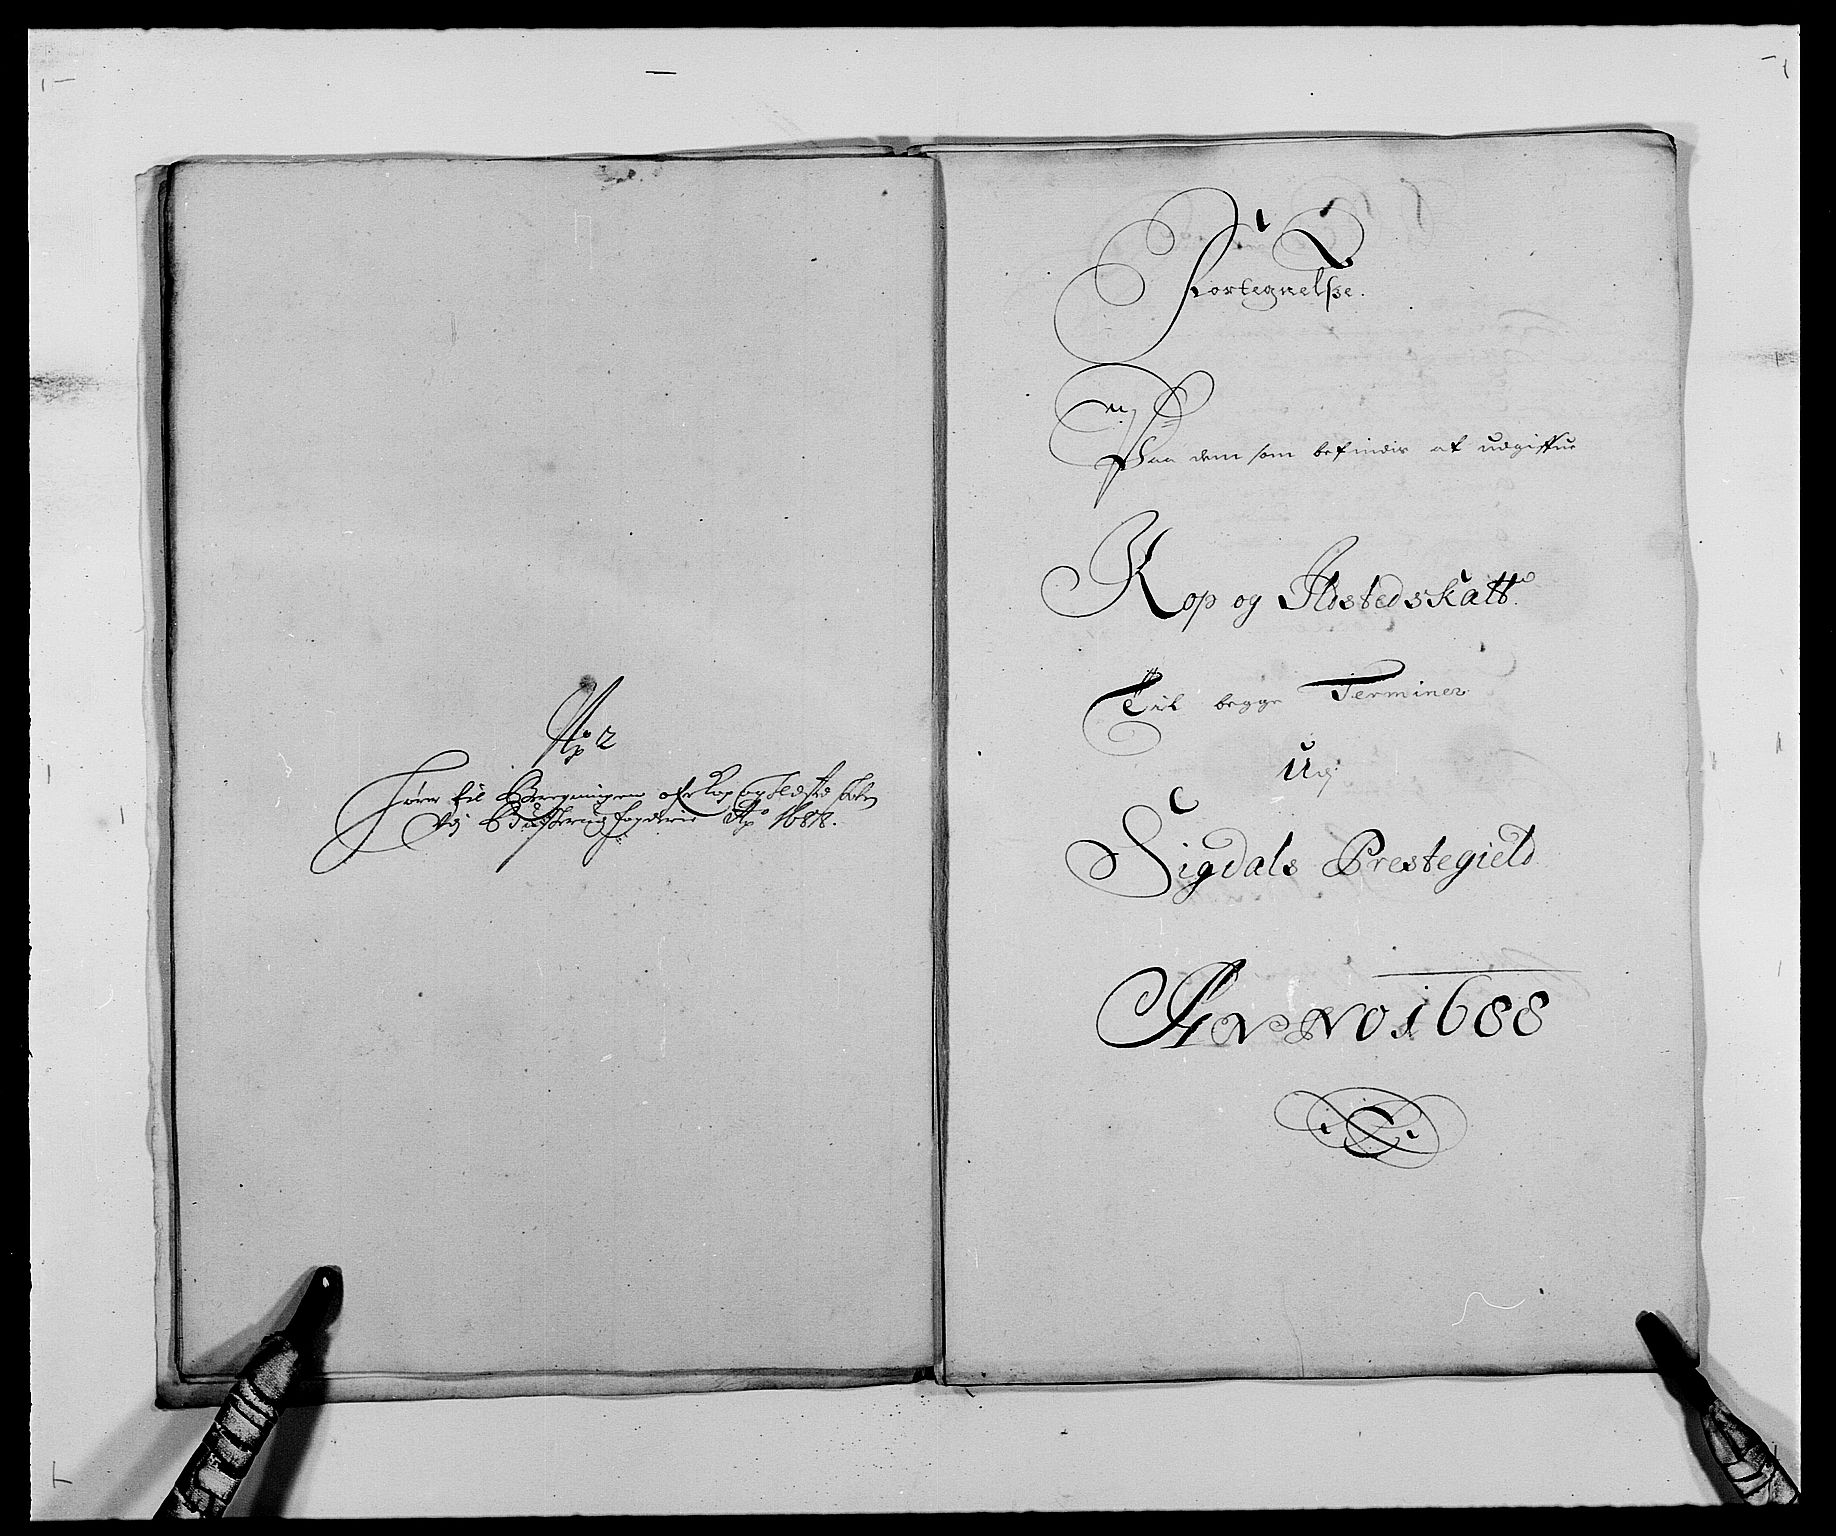 No 2
Hører til Beregningen ofr Kop og Ildste skatn
Udj Buscherud fogderie Ao 1688.
Fortegnelse.
Paa dem som befindis at udgifve
Kop og Ildstedskatt
Til begge Terminer
Udj
Sigdals Prestegield
Anno 1688